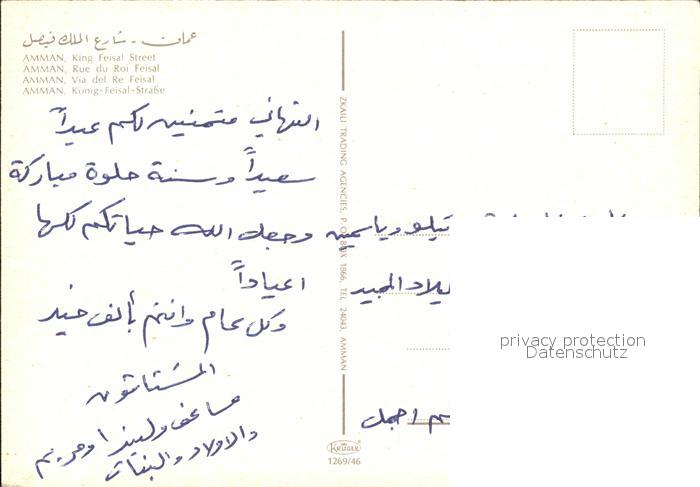 عمان - شارع الملك فيصل
AMMAN, King Feisal Street
AMMAN, Rue du Roi Feisal
AMMAN, Via del Re Feisal
AMMAN, König-Feisal-Straße
ZKAILI TRADING AGENCIES, P. O. BOX 1866, TEL 24043, AMMAN
KRÜGER
1269/46
وياسمين
المجيد
اجمل
التهاني متمنين لكم عيداً
سعيداً وسنة حلوة مباركة
وجعل الله حياتكم كلها
اعياداً
وكل عام وانتم بألف خير
المشتاقون
وليندا ومريم
والاولاد والبنات
privacy protection
Datenschutz